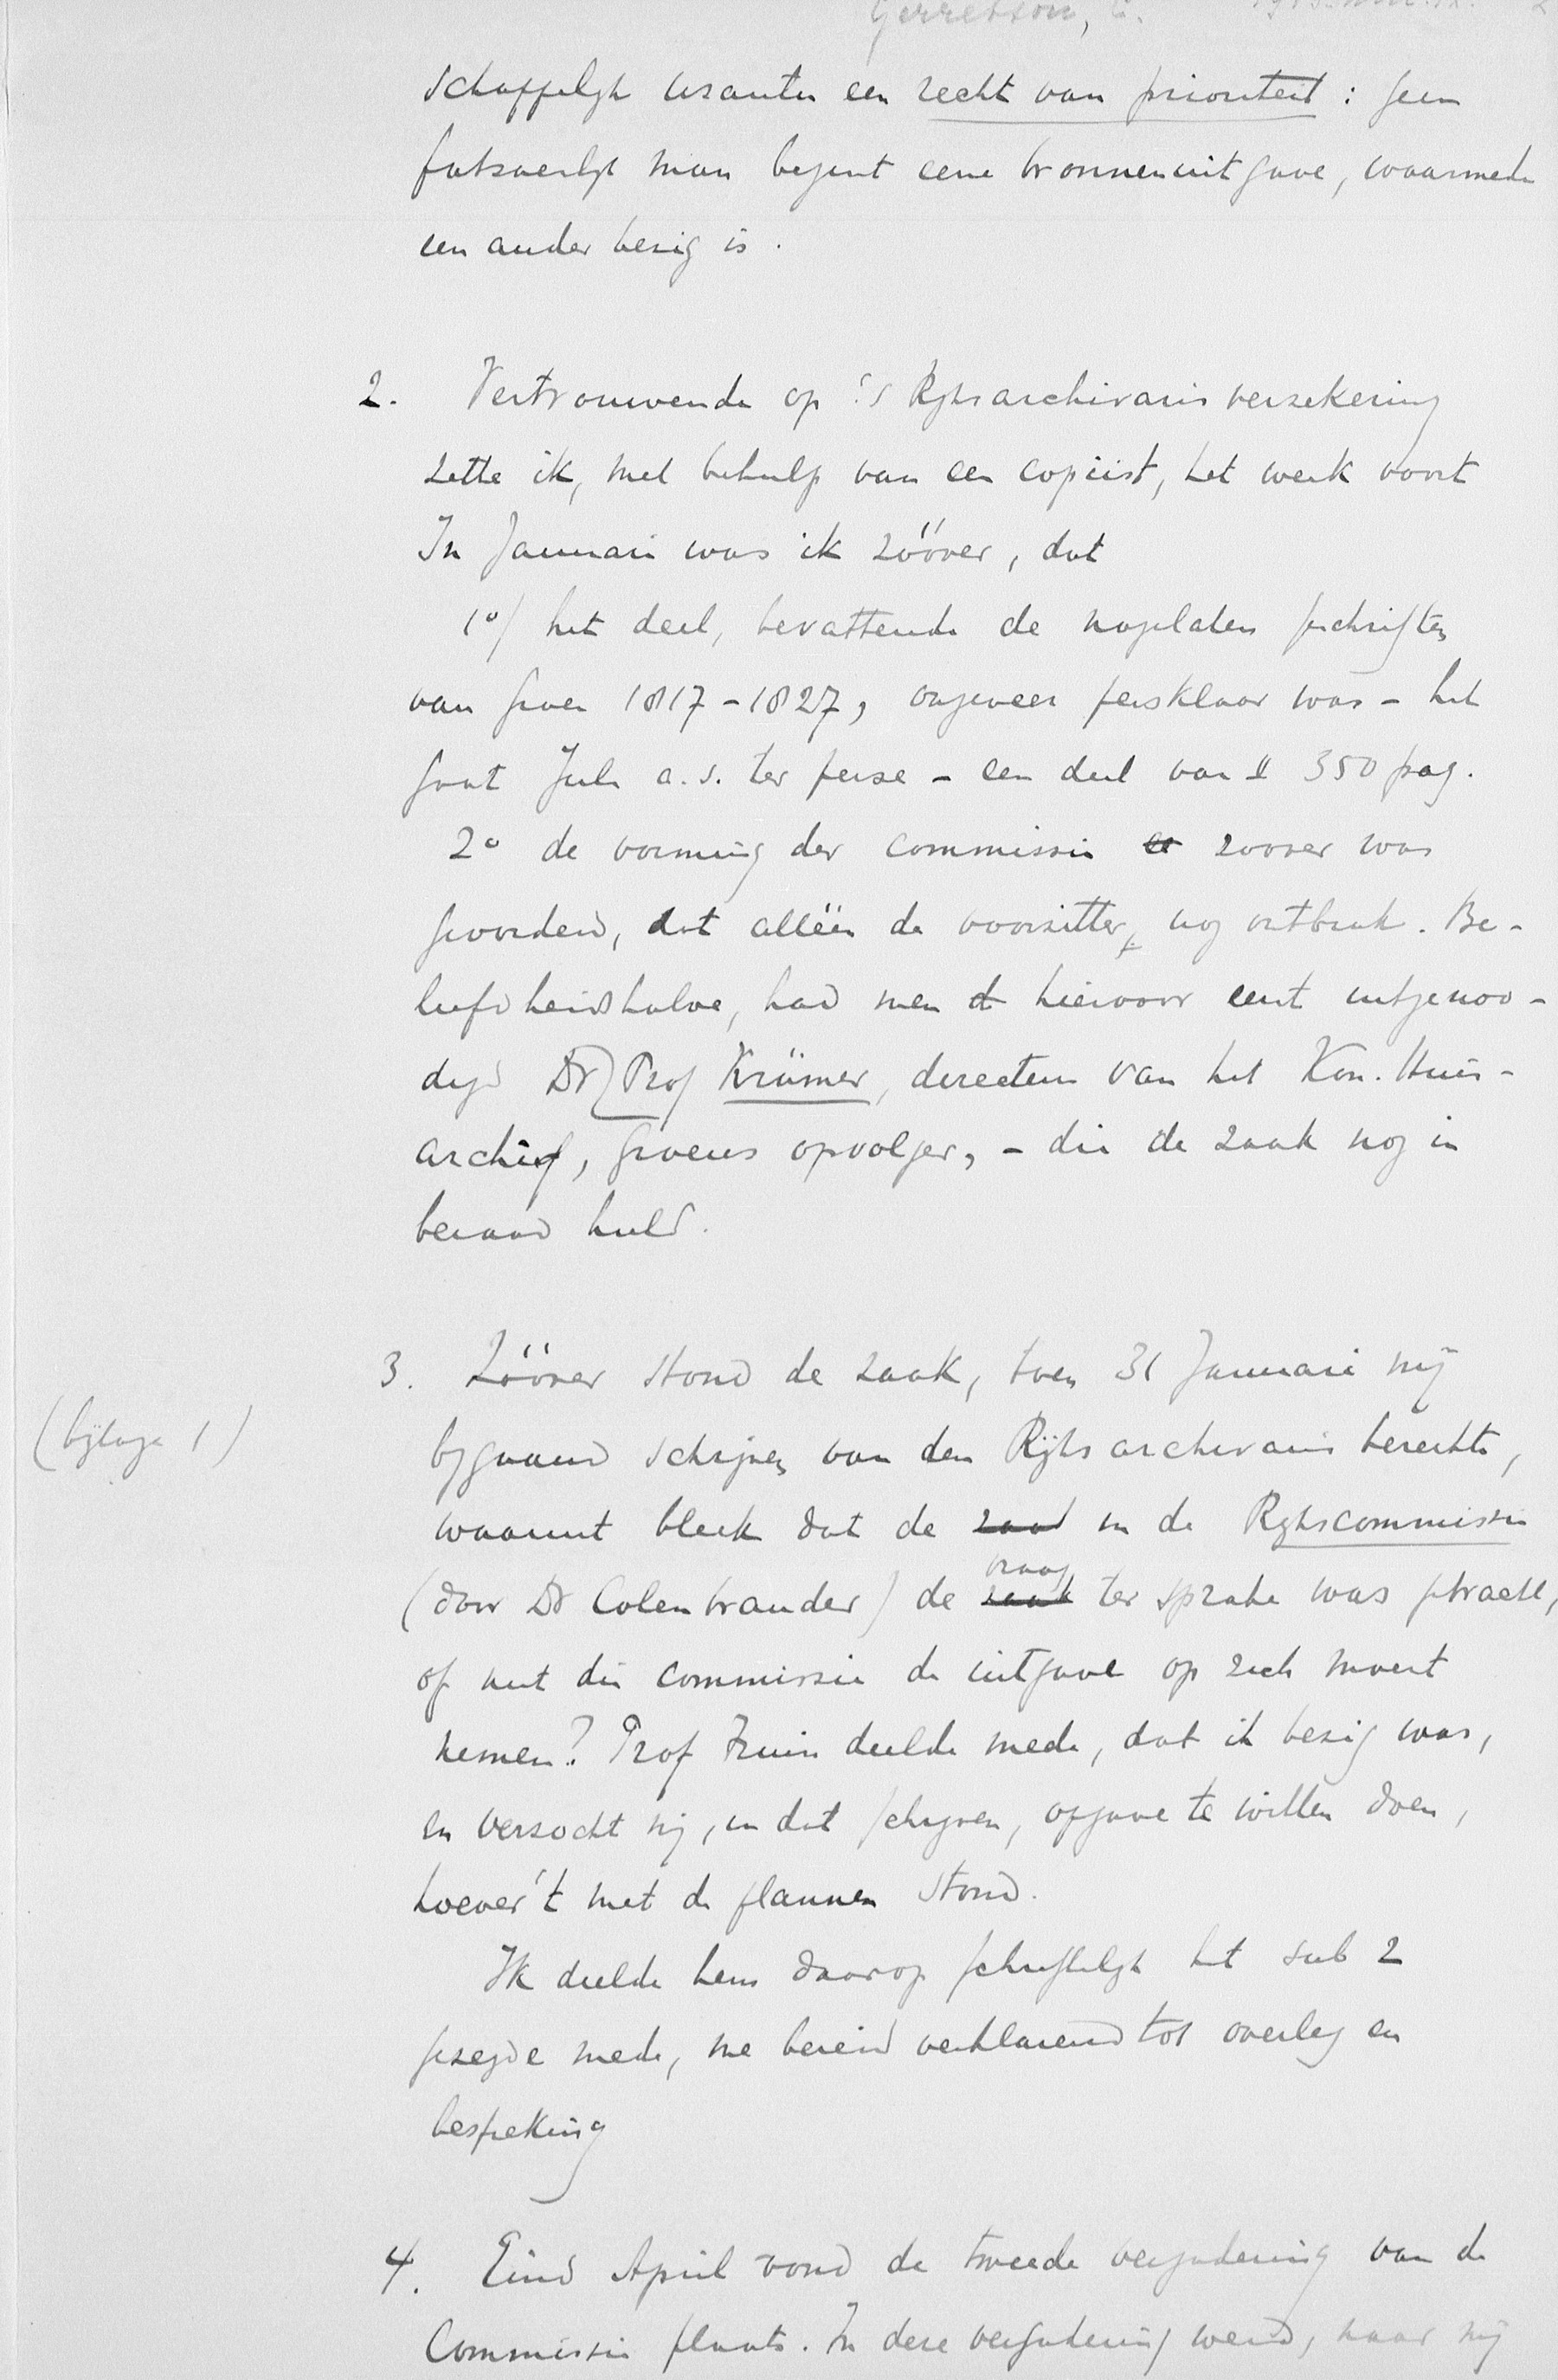 Gerretson, C.
schappelijk usantie een recht van prioriteit : geen
fatsoenlijk man begint eene bronnenuitgave, waarmede
een ander bezig is.
2. Vertrouwende op 's Rijksarchivaris verzekering
zette ik, met behulp van een copiïst, het werk voort
In Januari was ik zóóver, dat
1º/ het deel, bevattende de nagelaten geschriften
van Groen 1817-1827, ongeveer persklaar was - het
gaat Juli a.s. ter perse - een deel van ± 350 pag.
2º de vorming der commissie zoover was
geworden, dat alléén de voorzitter nog ontbrak. Be-
leefdheidshalve, had men hiervoor eerst uitgenoo-
digd Dr Prof Krämer, directeur van het Kon. Huis-
archief, Groens opvolger, - die de zaak nog in
beraad hield.
3. Zóóver stond de zaak, toen 31 Januari mij
(bijlage 1)
bijgaand schrijven van den Rijksarchivaris bereikte,
waaruit bleek dat de zaak in de Rijkscommissie
vraag
(door Dr Colenbrander) de zaak ter sprake was gebracht,
of niet die commissie de uitgave op zich moest
nemen? Prof Fruin deelde mede, dat ik bezig was,
en verzocht mij, in dat schrijven, opgave te willen doen,
hoever 't met de plannen stond.
Ik deelde hem daarop schriftelijk het sub 2
gezegde mede, me bereid verklarend tot overleg en
bespreking
4. Eind April vond de tweede vergadering van de
Commissie plaats. In deze vergadering werd, naar mij